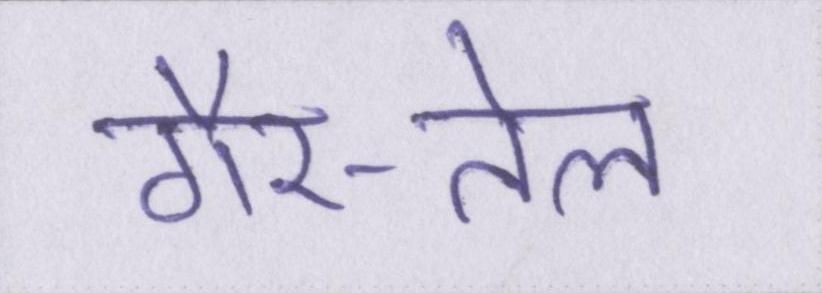 गैर-तेल